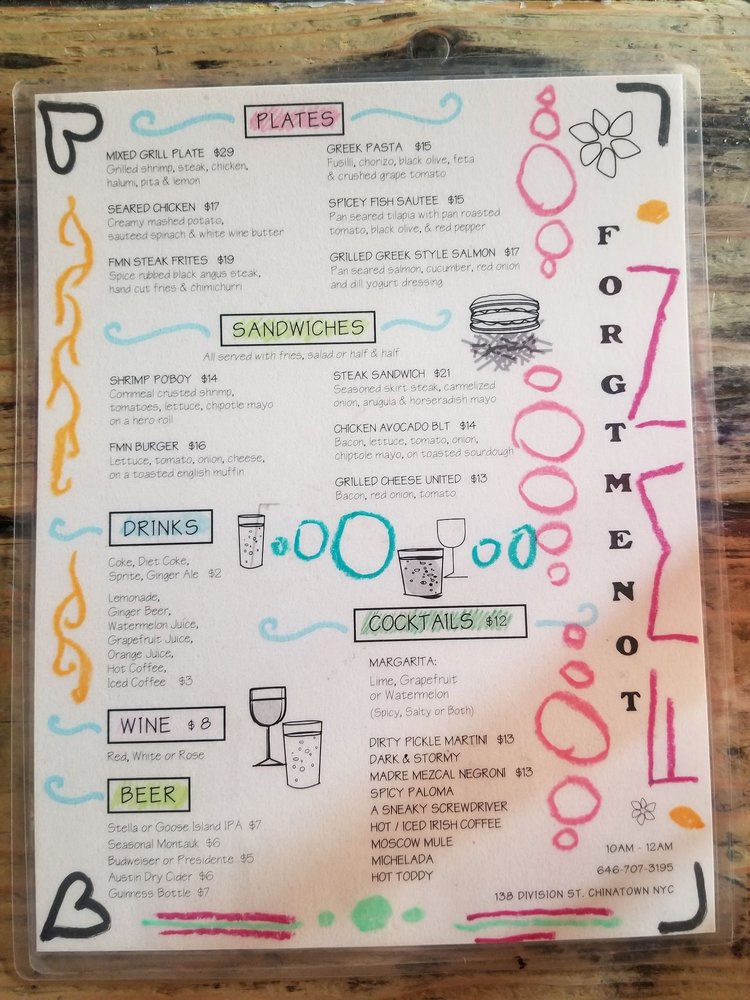 PLATES
MIXED GRILL PLATE $29
Grilled shrimp, steak, chicken,
halumi, pita & lemon
SEARED CHICKEN $17
Creamy mashed potato,
sauteed spinach & white wine butter
FMN STEAK FRITES $19
Spice rubbed black angus steak,
hand cut fries & chimichurri
GREEK PASTA $15
Fusilli, chorizo, black olive, feta
& crushed grape tomato
SPICEY FISH SAUTEE $15
Pan seared tilapia with pan roasted
tomato, black olive, & red pepper
GRILLED GREEK STYLE SALMON $17
Pan seared salmon, cucumber, red onion
and dill yogurt dressing
SANDWICHES
All served with fries, salad or half & half
SHRIMP PO'BOY $14
Cornmeal crusted shrimp,
tomatoes, lettuce, chipotle mayo
on a hero roll
FMN BURGER $16
Lettuce, tomato, onion, cheese,
on a toasted english muffin
STEAK SANDWICH $21
Seasoned skirt steak, carmelized
onion, arugula & horseradish mayo
CHICKEN AVOCADO BLT $14
Bacon, lettuce, tomato, onion,
chiptole mayo, on toasted sourdough
GRILLED CHEESE UNITED $13
Bacon, red onion, tomato
DRINKS
Coke, Diet Coke,
Sprite, Ginger Ale $2
Lemonade,
Ginger Beer,
Watermelon Juice,
Grapefruit Juice,
Orange Juice,
Hot Coffee,
Iced Coffee $3
WINE $8
Red, White or Rose
BEER
Stella or Goose Island IPA $7
Seasonal Montauk $6
Budweiser or Presidente $5
Austin Dry Cider $6
Guinness Bottle $7
COCKTAILS $12
MARGARITA:
Lime, Grapefruit
or Watermelon
(Spicy, Salty or Both)
DIRTY PICKLE MARTINI $13
DARK & STORMY
MADRE MEZCAL NEGRONI $13
SPICY PALOMA
A SNEAKY SCREWDRIVER
HOT / ICED IRISH COFFEE
MOSCOW MULE
MICHELADA
HOT TODDY
FORGTMENOT
10AM - 12AM
646-707-3195
138 DIVISION ST. CHINATOWN NYC